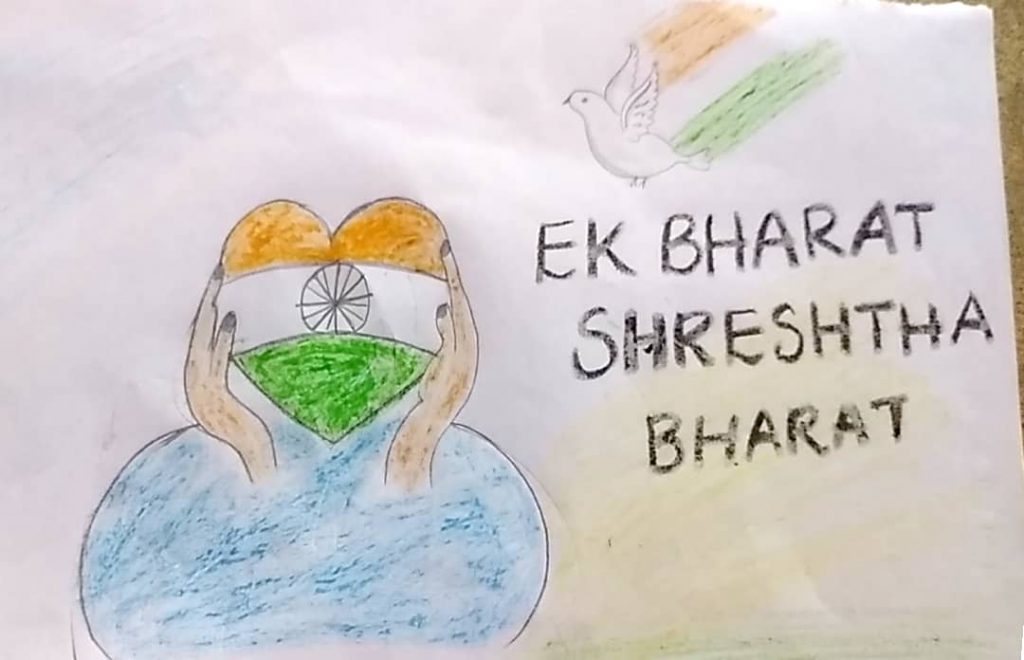 EK BHARAT
SHRESHTHA
BHARAT